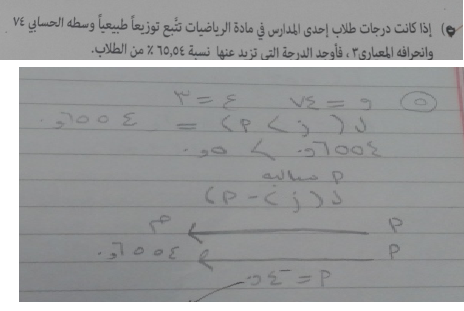 ٥) إذا كانت درجات طلاب إحدى المدارس في مادة الرياضيات تتَّبع توزيعاً طبيعياً وسطه الحسابي ٧٤
وانحرافه المعياري ٣ ، فأوجد الدرجة التي تزيد عنها نسبة ٦٥,٥٤ ٪ من الطلاب.
٥ و = ٧٤ ع = ٣
ل ( ز > P) = ٦٥٥٤,٠
٦٥٥٤,٠ > ٥,٠
P سالبه
ل ( ز > -P)
P
P ٦٥٥٤,٠
P = -٤,٠